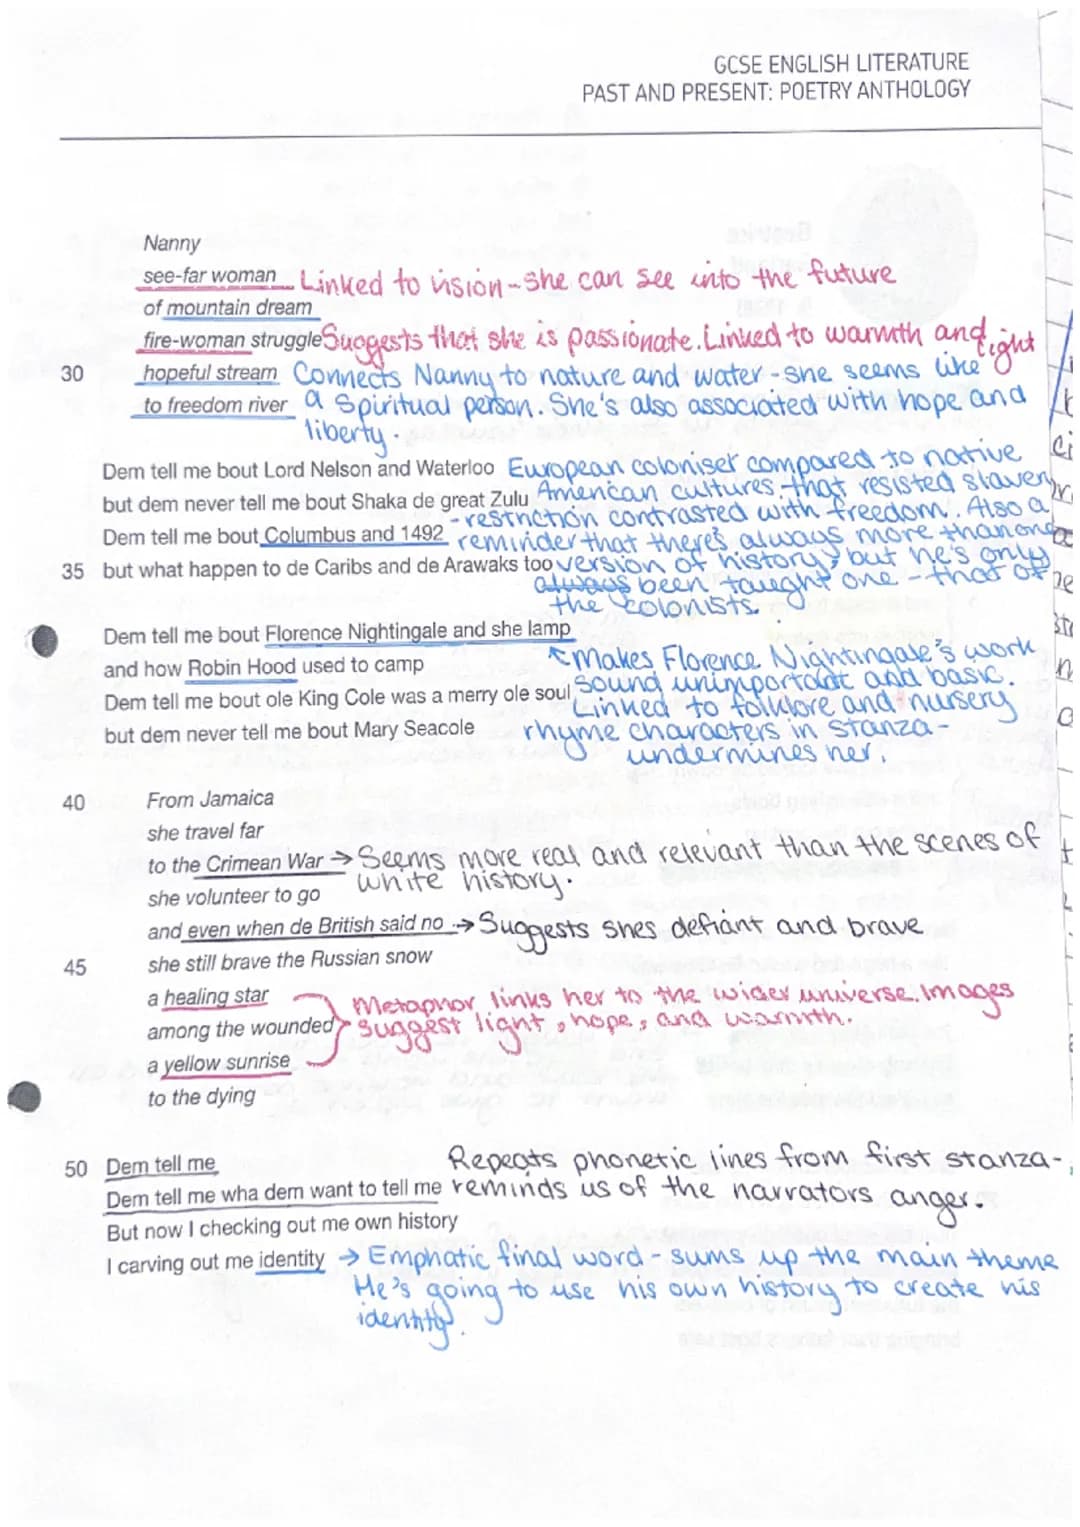 GCSE ENGLISH LITERATURE
PAST AND PRESENT: POETRY ANTHOLOGY
Nanny
see-far woman Linked to vision - she can see into the future
of mountain dream
fire-woman struggle Suggests that she is passionate. Linked to warmth and light
30 hopeful stream Connects Nanny to nature and water - she seems like
to freedom river a spiritual person. She's also associated with hope and
liberty.
Dem tell me bout Lord Nelson and Waterloo European coloniser compared to native
but dem never tell me bout Shaka de great Zulu American cultures, that resisted slavery
Dem tell me bout Columbus and 1492 - restriction contrasted with freedom. Also a
reminder that there's always more than one
35 but what happen to de Caribs and de Arawaks too version of history, but he's only
always been taught one - that of
the colonists.
Dem tell me bout Florence Nightingale and she lamp
and how Robin Hood used to camp Makes Florence Nightingale's work
Dem tell me bout ole King Cole was a merry ole soul sound unimportant and basic.
Linked to folklore and nursery
but dem never tell me bout Mary Seacole rhyme characters in stanza -
undermines her.
40 From Jamaica
she travel far
to the Crimean War → Seems more real and relevant than the scenes of
white history.
she volunteer to go
and even when de British said no → Suggests shes defiant and brave
45 she still brave the Russian snow
a healing star Metaphor links her to the wider universe. Images
among the wounded suggest light, hope, and warmth.
a yellow sunrise
to the dying
50 Dem tell me Repeats phonetic lines from first stanza -
Dem tell me wha dem want to tell me reminds us of the narrators anger.
But now I checking out me own history
I carving out me identity → Emphatic final word - sums up the main theme
He's going to use his own history to create his
identity.